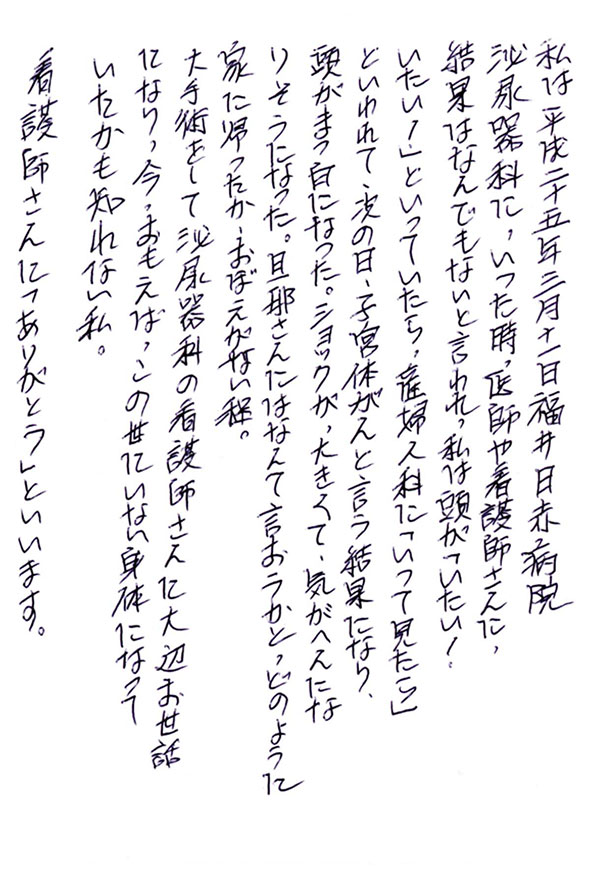 私は平成二十五年三月十一日福井日赤病院
泌尿器科に、いった時、医師や看護師さんに、
結果はなんでもないと言われ、私は頭が「いたい！
いたい！」といっていたら、産婦人科に「いって見たら」
といわれて、次の日、子宮体がんと言う結果になり、
頭がまっ白になった。ショックが、大きくて、気がへんにな
りそうになった。旦那さんにはなんて言おうかと、どのように
家に帰ったか、おぼえがない程。
大手術をして泌尿器科の看護師さんに大辺お世話
になり、今、おもえば、この世にいない身体になって
いたかも知れない私。
看護師さんに「ありがとう」といいます。